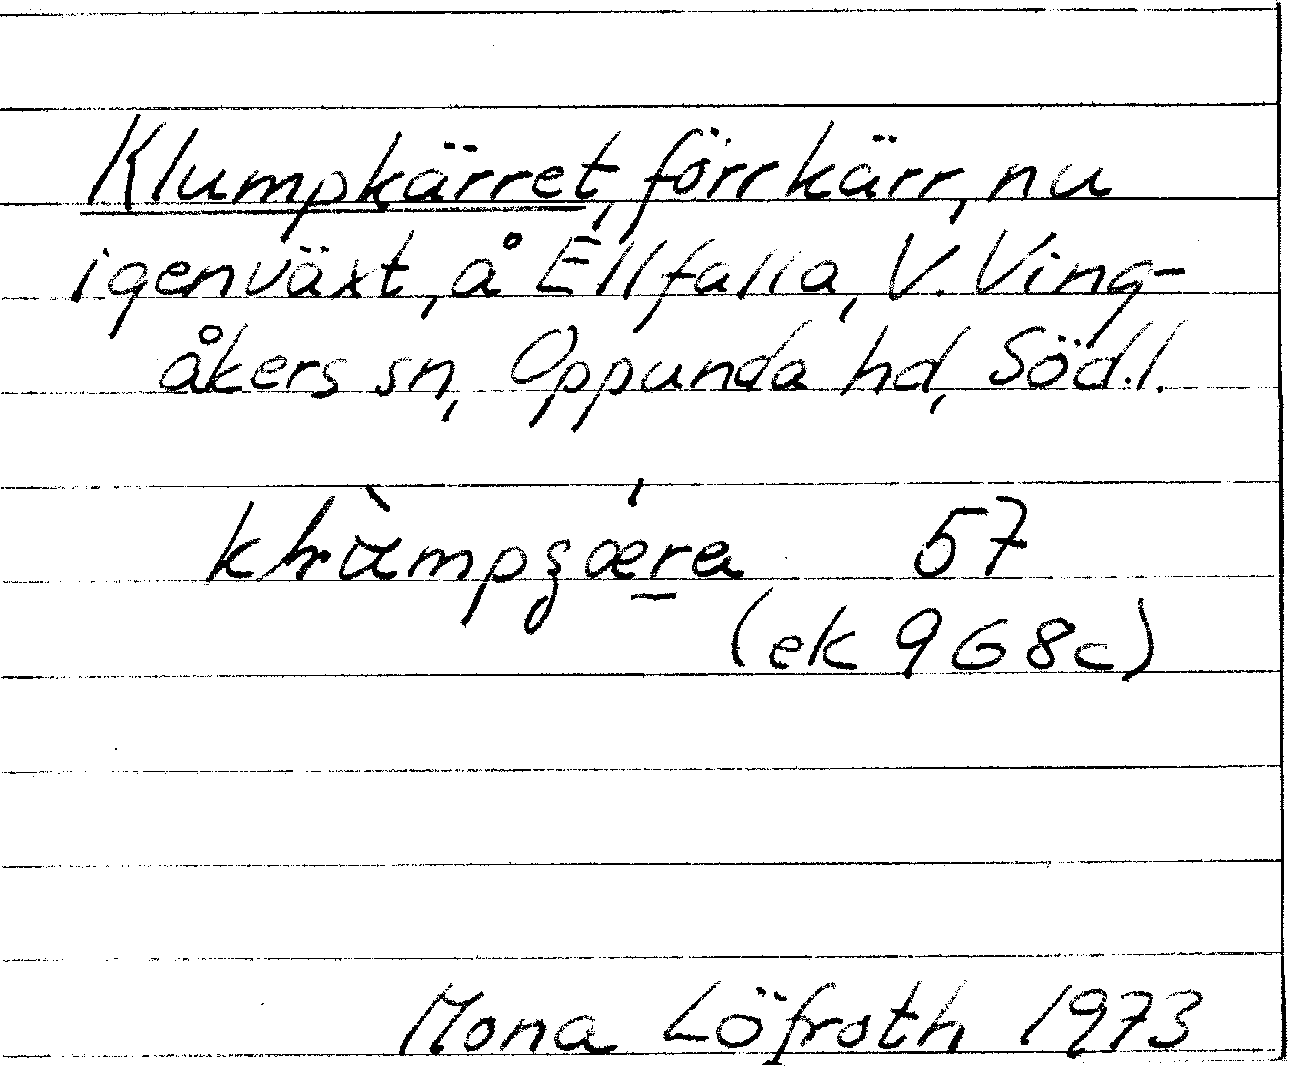 Klumpkärret, förr kärr, nu
igenväxt, å Ellfalla, V. Ving-
åkers sn, Oppunda hd, Söd.l.
57
(ek 9G8c)
Mona Löfroth 1973